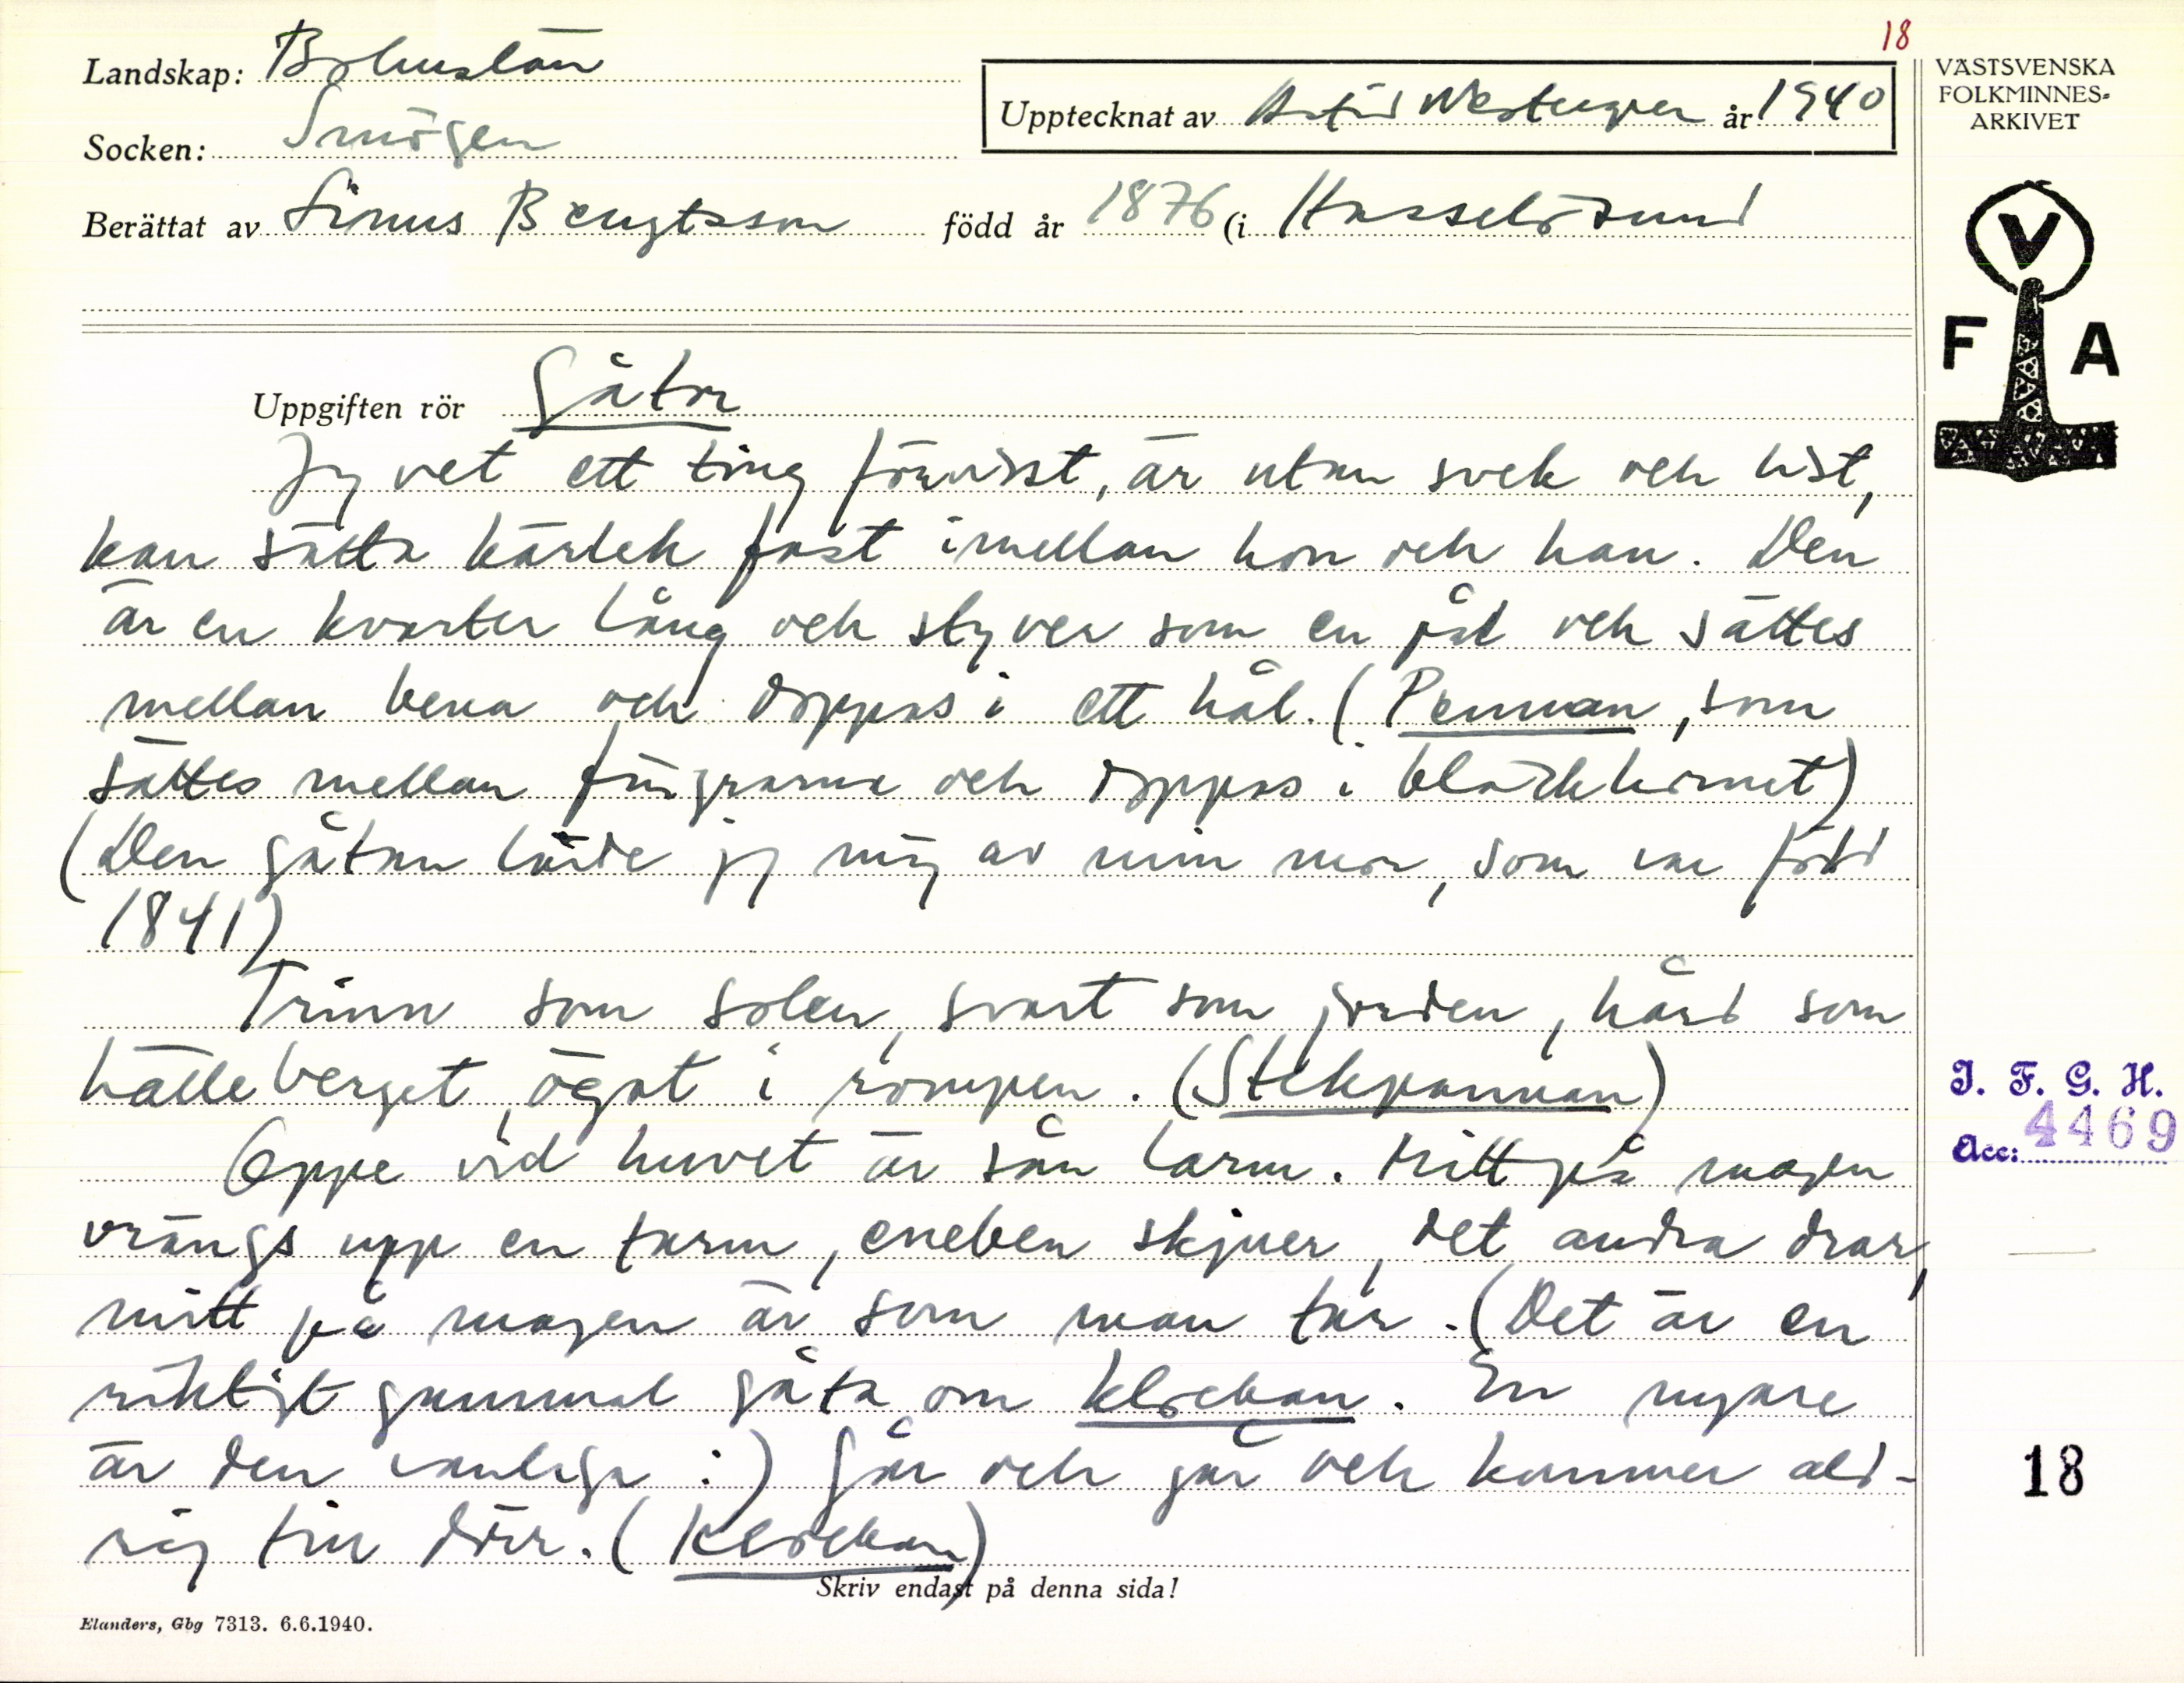 18
Landskap: Bohuslän
Upptecknat av Astrid Westergren år 1940
Socken: Smögen
Berättat av Linus Bengtsson född år 1876 (i Hasselösund
VÄSTSVENSKA
FOLKMINNES-
ARKIVET
V
F A
Uppgiften rör Gåtor
Jag vet ett ting förvisst, är utan svek och list,
kan sätta kärlek fast imellan hon och han. Den
är en kvarter lång och styver som en pål och sättes
mellan bena och doppas i ett hål. (Pennan, som
sättes mellan fingrarna och doppas i bläckhornet)
(Den gåtan lärde jag mig av min mor, som var född
1841)
Trinn som solen, svart som jorden, hård som
hälleberget, ögat i rompen. (Stekpannan)
Oppe vid huvet är sån larm. Mitt på magen
vrängs upp en tarm, eneben skjuer, det andra drar,
mitt på magen är som man tar. (Det är en
riktigt gammal gåta om klockan. En nyare
är den vanliga:) Går och går och kommer ald-
rig till dörr. (Klockan)
Skriv endast på denna sida!
Elanders, Gbg 7313. 6.6.1940.
I. F. G. H.
Acc: 4469
18